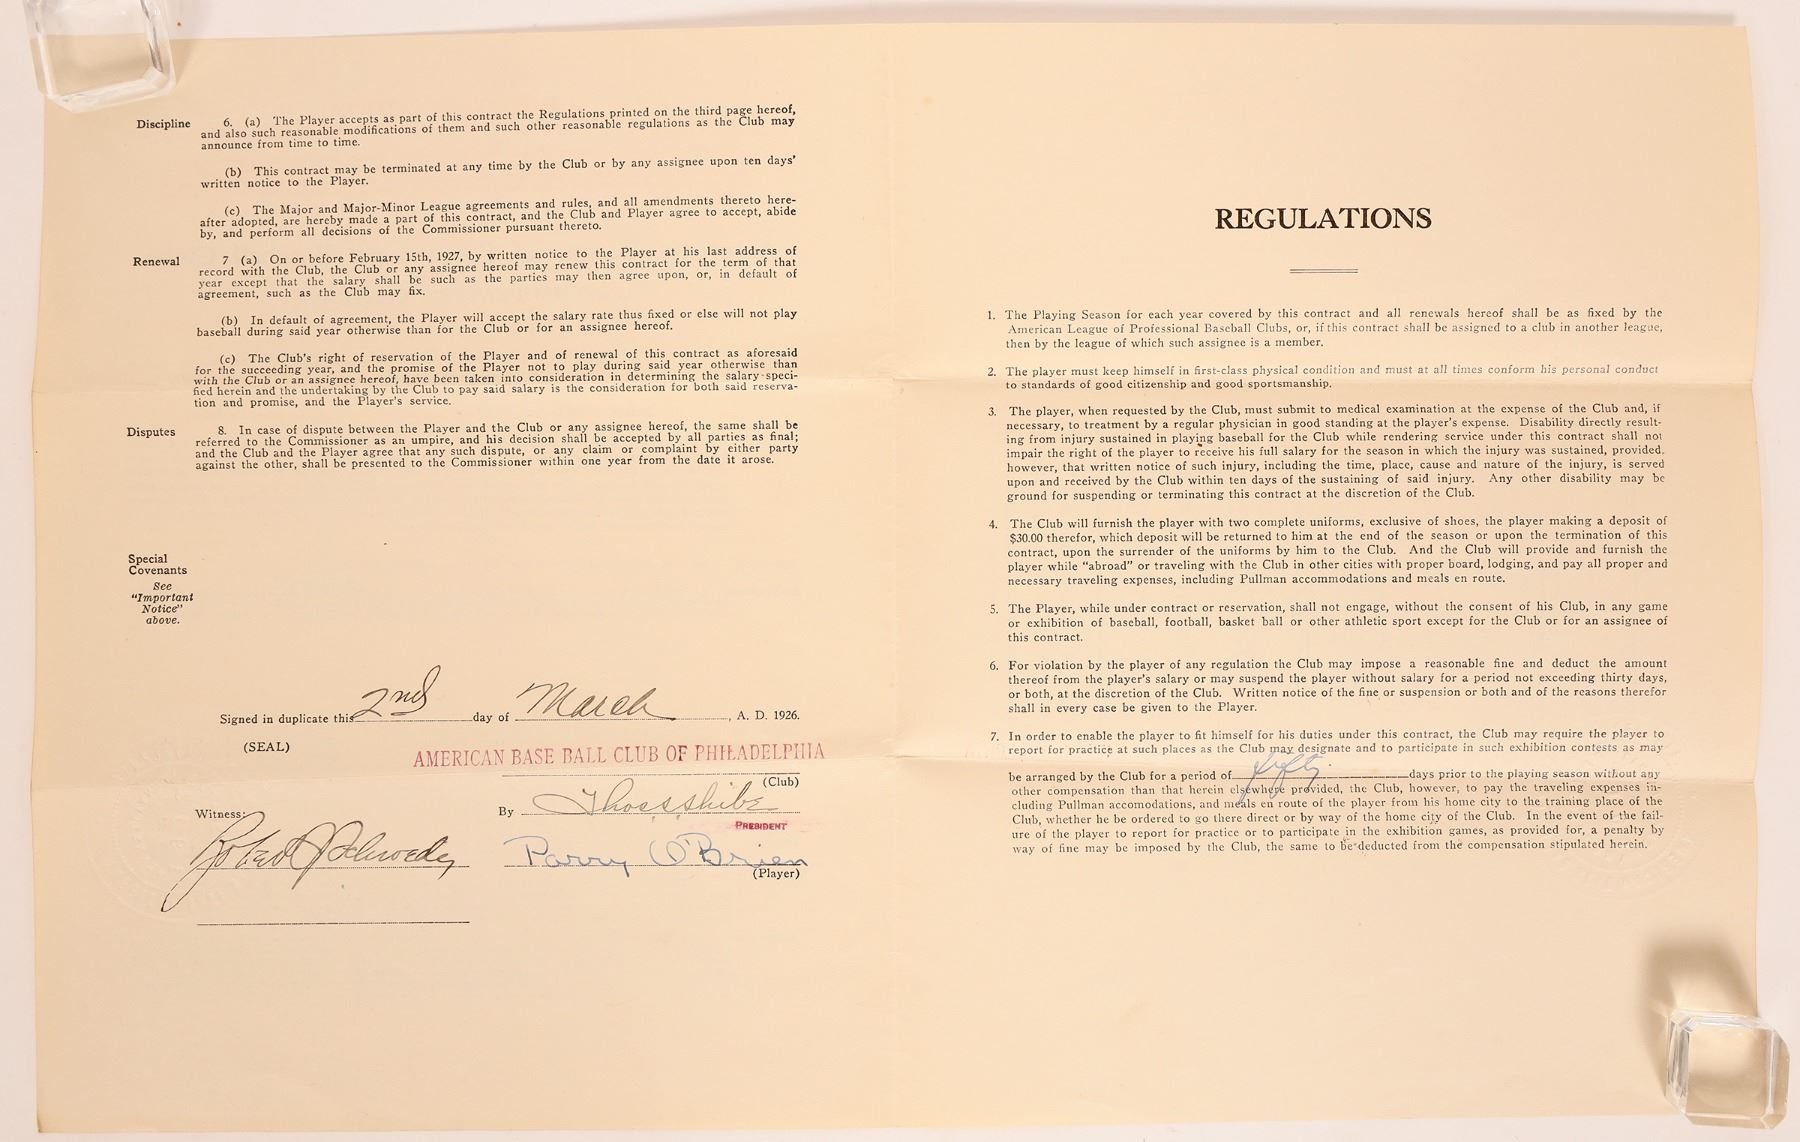 Discipline
6. (a) The Player accepts as part of this contract the Regulations printed on the third page hereof,
and also such reasonable modifications of them and such other reasonable regulations as the Club may
announce from time to time.
(b) This contract may be terminated at any time by the Club or by any assignee upon ten days'
written notice to the Player.
(c) The Major and Major-Minor League agreements and rules, and all amendments thereto here-
after adopted, are hereby made a part of this contract, and the Club and Player agree to accept, abide
by, and perform all decisions of the Commissioner pursuant thereto.
Renewal
7 (a) On or before February 15th, 1927, by written notice to the Player at his last address of
record with the Club, the Club or any assignee hereof may renew this contract for the term of that
year except that the salary shall be such as the parties may then agree upon, or, in default of
agreement, such as the Club may fix.
(b) In default of agreement, the Player will accept the salary rate thus fixed or else will not play
baseball during said year otherwise than for the Club or for an assignee hereof.
(c) The Club's right of reservation of the Player and of renewal of this contract as aforesaid
for the succeeding year, and the promise of the Player not to play during said year otherwise than
with the Club or an assignee hereof, have been taken into consideration in determining the salary speci-
fied herein and the undertaking by the Club to pay said salary is the consideration for both said reserva-
tion and promise, and the Player's service.
Disputes
8. In case of dispute between the Player and the Club or any assignee hereof, the same shall be
referred to the Commissioner as an umpire, and his decision shall be accepted by all parties as final;
and the Club and the Player agree that any such dispute, or any claim or complaint by either party
against the other, shall be presented to the Commissioner within one year from the date it arose.
Special
Covenants
See
"Important
Notice"
above.
Signed in duplicate this 2nd day of March, A. D. 1926.
(SEAL)
AMERICAN BASE BALL CLUB OF PHILADELPHIA
(Club)
Witness:
By Thos S Shibe
PRESIDENT
Robert J Schroeder
Parry O'Brien
(Player)
REGULATIONS
1. The Playing Season for each year covered by this contract and all renewals hereof shall be as fixed by the
American League of Professional Baseball Clubs, or, if this contract shall be assigned to a club in another league,
then by the league of which such assignee is a member.
2. The player must keep himself in first-class physical condition and must at all times conform his personal conduct
to standards of good citizenship and good sportsmanship.
3. The player, when requested by the Club, must submit to medical examination at the expense of the Club and, if
necessary, to treatment by a regular physician in good standing at the player's expense. Disability directly result-
ing from injury sustained in playing baseball for the Club while rendering service under this contract shall not
impair the right of the player to receive his full salary for the season in which the injury was sustained, provided,
however, that written notice of such injury, including the time, place, cause and nature of the injury, is served
upon and received by the Club within ten days of the sustaining of said injury. Any other disability may be
ground for suspending or terminating this contract at the discretion of the Club.
4. The Club will furnish the player with two complete uniforms, exclusive of shoes, the player making a deposit of
$30.00 therefor, which deposit will be returned to him at the end of the season or upon the termination of this
contract, upon the surrender of the uniforms by him to the Club. And the Club will provide and furnish the
player while "abroad" or traveling with the Club in other cities with proper board, lodging, and pay all proper and
necessary traveling expenses, including Pullman accommodations and meals en route.
5. The Player, while under contract or reservation, shall not engage, without the consent of his Club, in any game
or exhibition of baseball, football, basket ball or other athletic sport except for the Club or for an assignee of
this contract.
6. For violation by the player of any regulation the Club may impose a reasonable fine and deduct the amount
thereof from the player's salary or may suspend the player without salary for a period not exceeding thirty days,
or both, at the discretion of the Club. Written notice of the fine or suspension or both and of the reasons therefor
shall in every case be given to the Player.
7. In order to enable the player to fit himself for his duties under this contract, the Club may require the player to
report for practice at such places as the Club may designate and to participate in such exhibition contests as may
be arranged by the Club for a period of fifty days prior to the playing season without any
other compensation than that herein elsewhere provided, the Club, however, to pay the traveling expenses in-
cluding Pullman accomodations, and meals en route of the player from his home city to the training place of the
Club, whether he be ordered to go there direct or by way of the home city of the Club. In the event of the fail-
ure of the player to report for practice or to participate in the exhibition games, as provided for, a penalty by
way of fine may be imposed by the Club, the same to be deducted from the compensation stipulated herein.